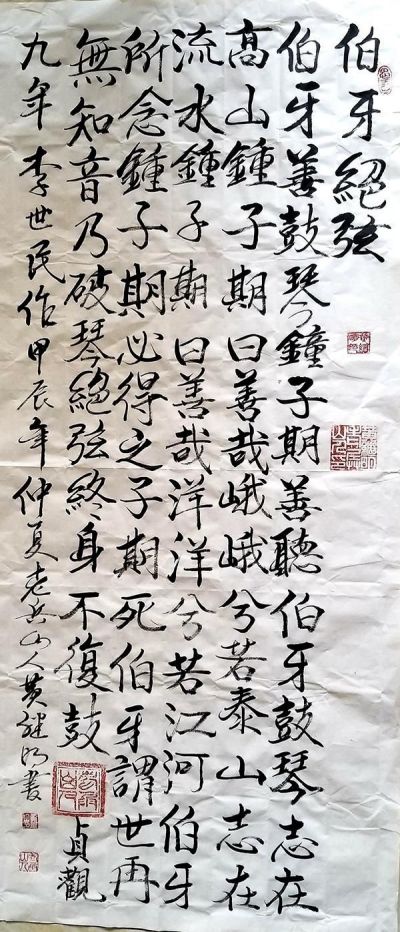 伯牙絕弦
伯牙善鼓琴鐘子期善聽伯牙鼓琴志在
高山鍾子期曰善哉峨峨兮若泰山志在
流水鍾子期曰善哉洋洋兮若江河伯牙
所念鍾子期必得之子期死伯牙謂世再
無知音乃破琴絕弦終身不復鼓 貞觀
九年李世民作甲辰年仲夏老兵山人黃繼明書